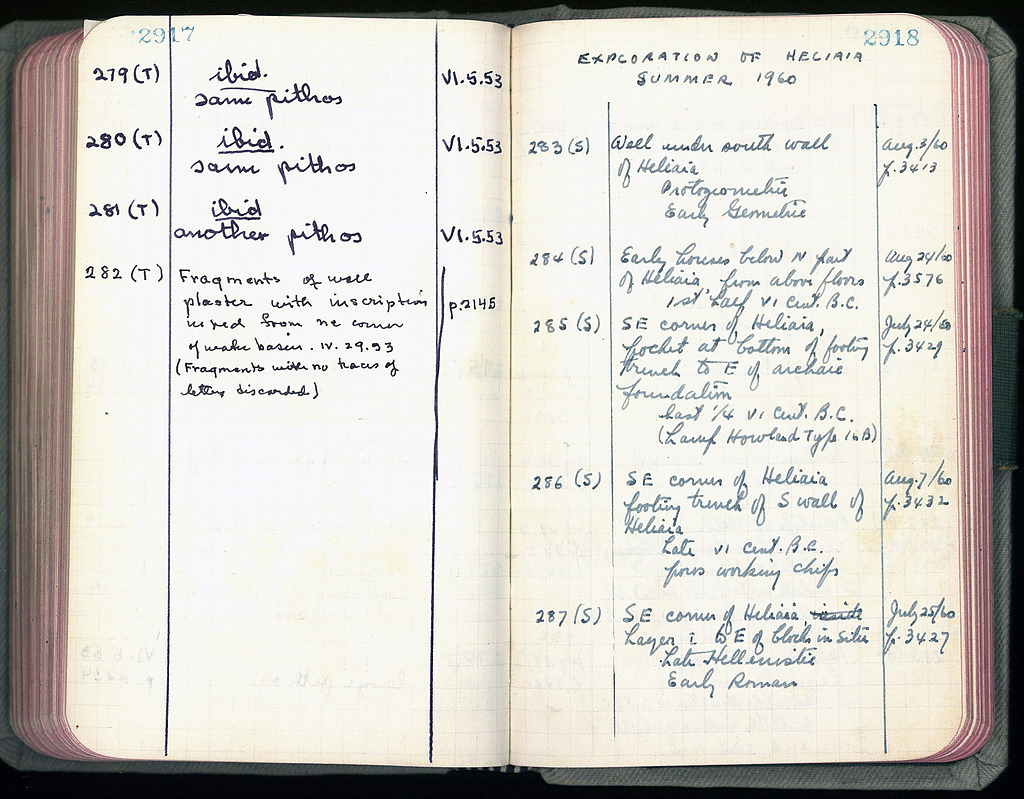 2917
279 (T) ibid. VI.5.53
same pithos
280 (T) ibid. VI.5.53
same pithos
281 (T) ibid
another pithos VI.5.53
282 (T) Fragments of wall
plaster with inscription p.2145
from NE corner
of basin. IV.29.53
(Fragments with no traces of
letters discarded)
2918
EXPLORATION OF HELIAIA
SUMMER 1960
283 (S) Well under south wall Aug.3/60
of Heliaia p.3413
Protogeometric
Early Geometric
284 (S) Early houses below N part Aug 24/60
of Heliaia, from above floors p.3576
1st half VI cent. B.C.
285 (S) SE corner of Heliaia, July 24/60
pocket at bottom of footing p.3429
trench to E of archaic
foundation
Last 1/4 VI cent. B.C.
(Lamp Howland Type 16B)
286 (S) SE corner of Heliaia Aug.7/60
footing trench of S wall of p.3432
Heliaia
Late VI cent. B.C.
poros working chips
287 (S) SE corner of Heliaia inside July 25/60
Layer I to E of blocks in situ p.3427
Late Hellenistic
Early Roman